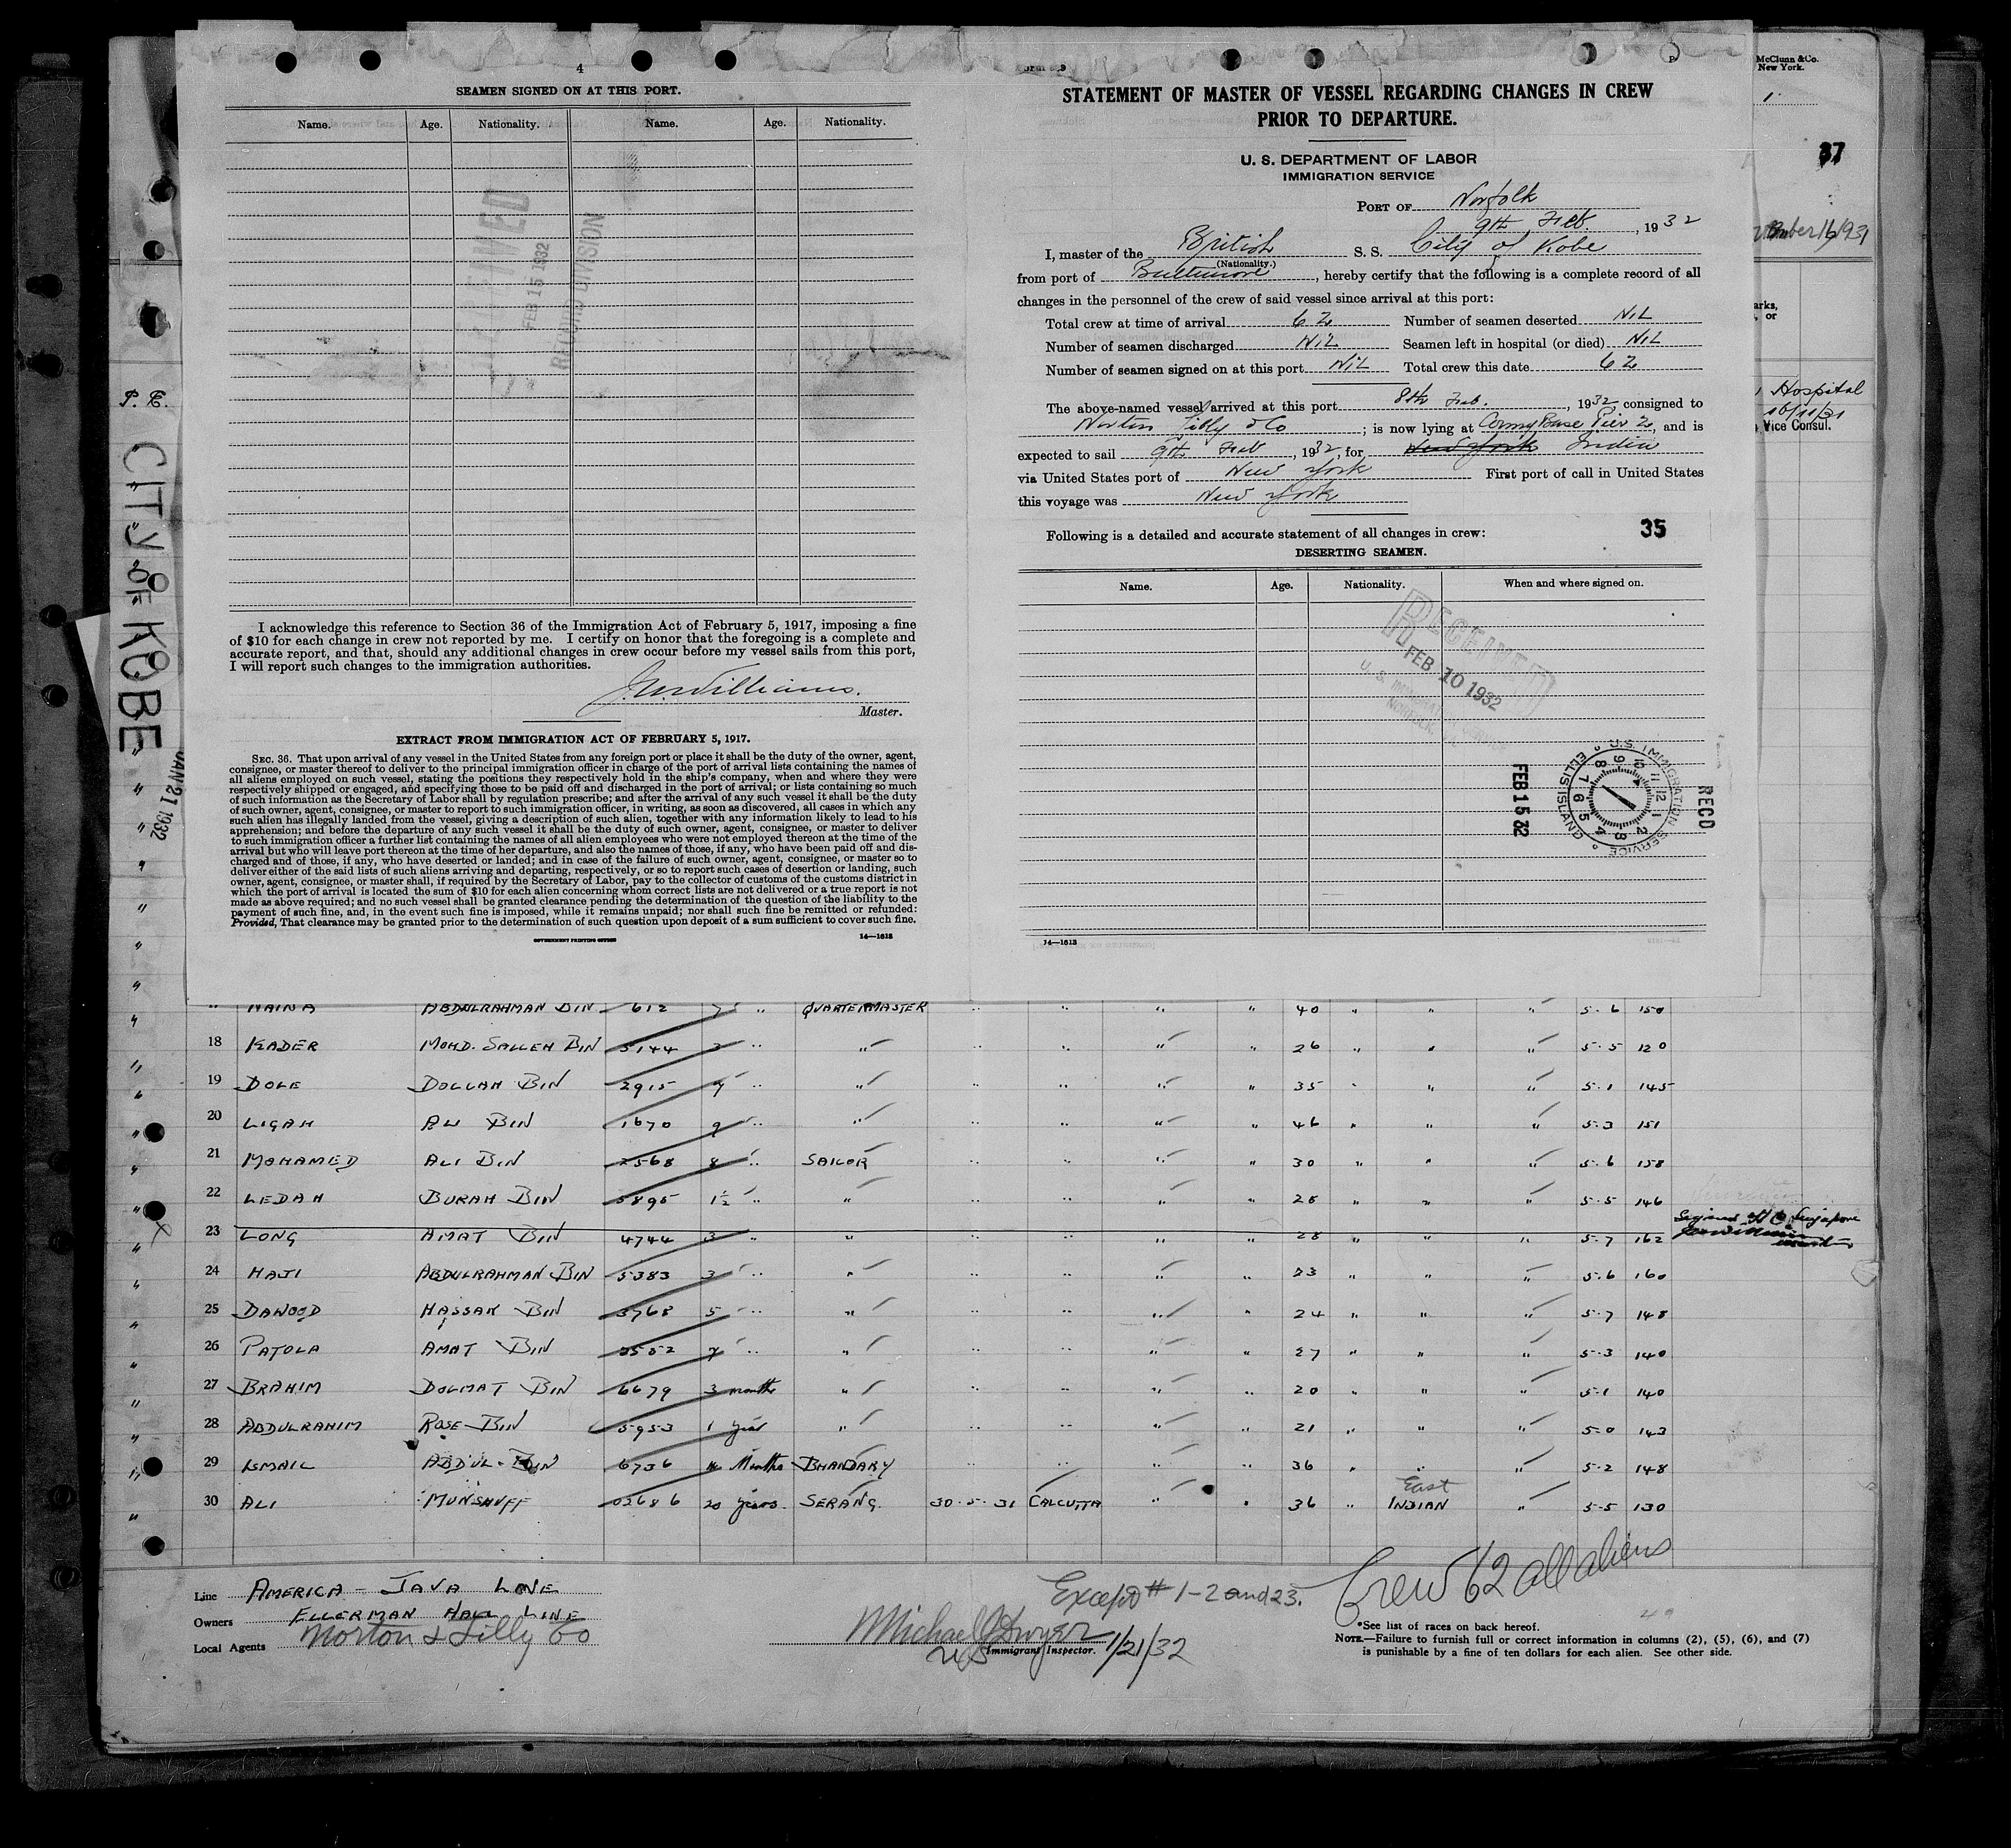 4
SEAMEN SIGNED ON AT THIS PORT.
Name. Age. Nationality. Name. Age. Nationality.
FEB 15 1932
RECORD DIVISION
I acknowledge this reference to Section 36 of the Immigration Act of February 5, 1917, imposing a fine
of $10 for each change in crew not reported by me. I certify on honor that the foregoing is a complete and
accurate report, and that, should any additional changes in crew occur before my vessel sails from this port,
I will report such changes to the immigration authorities.
J. Williams.
Master.
EXTRACT FROM IMMIGRATION ACT OF FEBRUARY 5, 1917.
SEC. 36. That upon arrival of any vessel in the United States from any foreign port or place it shall be the duty of the owner, agent,
consignee, or master thereof to deliver to the principal immigration officer in charge of the port of arrival lists containing the names of
all aliens employed on such vessel, stating the positions they respectively hold in the ship's company, when and where they were
respectively shipped or engaged, and specifying those to be paid off and discharged in the port of arrival; or lists containing so much
of such information as the Secretary of Labor shall by regulation prescribe; and after the arrival of any such vessel it shall be the duty
of such owner, agent, consignee, or master to report to such immigration officer, in writing, as soon as discovered, all cases in which any
such alien has illegally landed from the vessel, giving a description of such alien, together with any information likely to lead to his
apprehension; and before the departure of any such vessel it shall be the duty of such owner, agent, consignee, or master to deliver
to such immigration officer a further list containing the names of all alien employees who were not employed thereon at the time of the
arrival but who will leave port thereon at the time of her departure, and also the names of those, if any, who have been paid off and dis-
charged and of those, if any, who have deserted or landed; and in case of the failure of such owner, agent, consignee, or master so to
deliver either of the said lists of such aliens arriving and departing, respectively, or so to report such cases of desertion or landing, such
owner, agent, consignee, or master shall, if required by the Secretary of Labor, pay to the collector of customs of the customs district in
which the port of arrival is located the sum of $10 for each alien concerning whom correct lists are not delivered or a true report is not
made as above required; and no such vessel shall be granted clearance pending the determination of the question of the liability to the
payment of such fine, and, in the event such fine is imposed, while it remains unpaid; nor shall such fine be remitted or refunded:
Provided, That clearance may be granted prior to the determination of such question upon deposit of a sum sufficient to cover such fine.
GOVERNMENT PRINTING OFFICE 14—1613
STATEMENT OF MASTER OF VESSEL REGARDING CHANGES IN CREW
PRIOR TO DEPARTURE.
U. S. DEPARTMENT OF LABOR
IMMIGRATION SERVICE
PORT OF Norfolk
9th Feb. , 1932
I, master of the British S. S. City of Kobe
(Nationality.)
from port of Baltimore, hereby certify that the following is a complete record of all
changes in the personnel of the crew of said vessel since arrival at this port:
Total crew at time of arrival 62 Number of seamen deserted NIL
Number of seamen discharged NIL Seamen left in hospital (or died) NIL
Number of seamen signed on at this port NIL Total crew this date 62
The above-named vessel arrived at this port 8th Feb. , 1932 consigned to
Norton Lilly & Co ; is now lying at Army Base Pier 2, and is
expected to sail 9th Feb , 1932, for New York India
via United States port of New York First port of call in United States
this voyage was New York
Following is a detailed and accurate statement of all changes in crew: 35
DESERTING SEAMEN.
Name. Age. Nationality. When and where signed on.
RECEIVED
FEB 10 1932
U. S. IMMIGRATION SERVICE
NORFOLK
FEB 15 32
U.S. IMMIGRATION SERVICE
ELLIS ISLAND
RECD
14—1613
McClunn & Co.
New York.
1
37
Hospital
16/11/31
Vice Consul.
P. E.
CITY OF KOBE
JAN 21 1932
" NAINA ABDULRAHMAN BIN 612 7 " QUARTERMASTER " " " " 40 " " " 5-6 150
18 KADER MOHD. SALLEH BIN 5144 " " " " " " 26 " " " 5-5 120
19 DOLE DOLLAH BIN 2915 " " " " " " 35 " " " 5-1 145
20 LIGAH ALI BIN 1670 9 " " " " " " 46 " " " 5-3 151
21 MOHAMED ALI BIN 2568 8 " SAILOR " " " " 30 " " " 5-6 158
22 LEDAH BURAH BIN 5895 1½ " " " " " " 28 " " " 5-5 146
23 LONG AMAT BIN 4744 3 " " " " 28 " " " 5-7 162 Signed off @ Singapore
24 HAJI ABDULRAHMAN BIN 5383 3 " " " " " " 23 " " " 5-6 160
25 DAWOOD HASSAN BIN 3768 5 " " " " " " 24 " " " 5-7 148
26 PATOLA AMAT BIN 3552 7 " " " " " " 27 " " " 5-3 140
27 BRAHIM DOLMAT BIN 6679 3 months " " " " " 20 " " " 5-1 140
28 ABDULRAHIM ROSE BIN 5953 1 year " " " " " 21 " " " 5-0 143
29 ISMAIL ABDUL BIN 6736 Months BHANDARY " " " " 36 " " " 5-2 148
30 ALI MUNSHUFF 02686 20 years SERANG 30-5-31 CALCUTTA " " 36 " East INDIAN " 5-5 130
Line AMERICA - JAVA LINE
Owners ELLERMAN HALL LINE
Local Agents Norton & Lilly Co
Except # 1-2 and 23.
Crew 62 all aliens
Michael J Dwyer
Immigrant Inspector. 1/21/32
*See list of races on back hereof.
NOTE.—Failure to furnish full or correct information in columns (2), (5), (6), and (7)
is punishable by a fine of ten dollars for each alien. See other side.